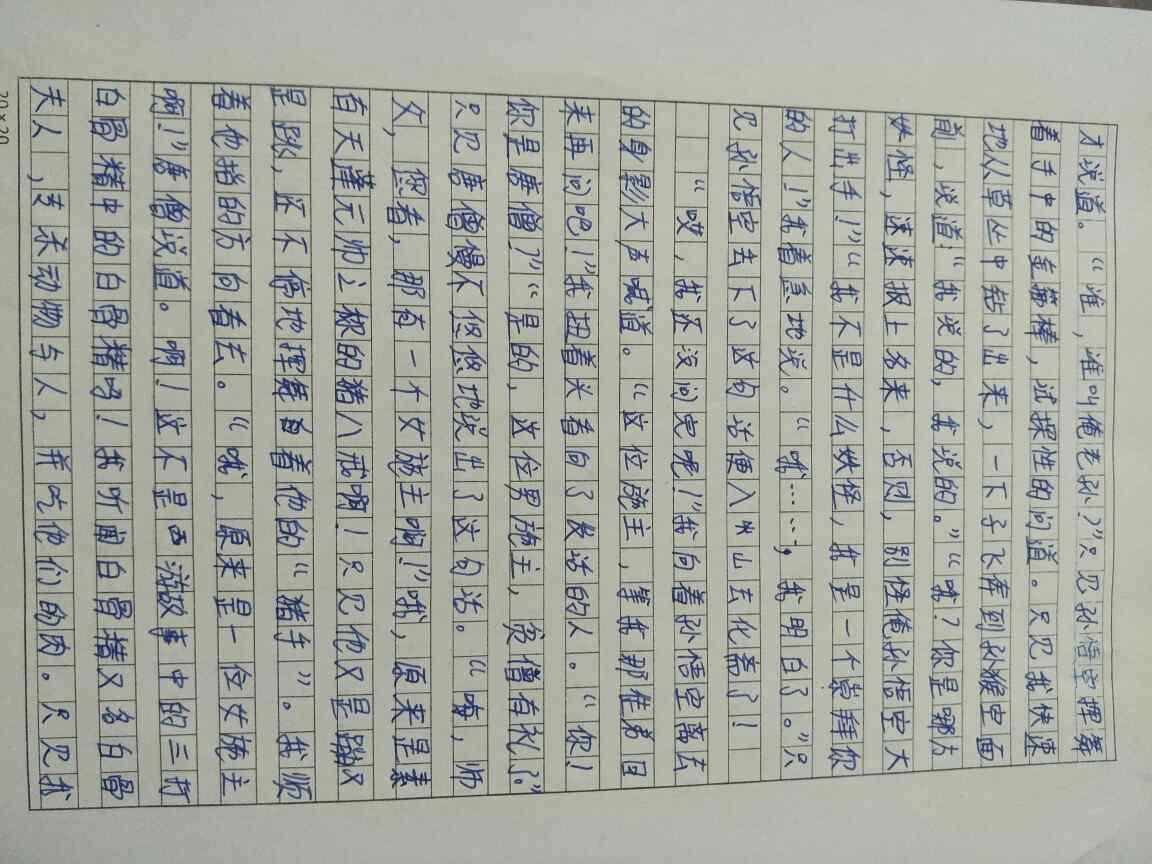 才说道。“谁，谁叫俺老孙？”只见孙悟空挥舞
着手中的金箍棒，试探性的问道。只见我快速
地从草丛中钻了出来，一下子飞奔到孙猴空面
前，说道“我说的，我说的。”“哦？你是哪方
妖怪，速速报上名来，否则，别怪俺孙悟空大
打出手！”“我不是什么妖怪，我是一个崇拜你
的人！”我着急地说。“哦……，我明白了。”只
见孙悟空丢下了这句话便入山去化斋了！
“哎，我还没问完呢！”我向着孙悟空离去
的身影大声喊道。“这位施主，等我那徒弟回
来再问吧！”我扭着头看向了发话的人。“你！
你是唐僧？”“是的，这位男施主，贫僧有礼了。”
只见唐僧慢不悠悠地说出了这句话。“嘀，师
父，您看，那有一个女施主啊！”哦，原来是素
有天蓬元帅之称的猪八戒啊！只见他又是蹦又
是跳，还不停地挥舞着他的“猪手”。我顺
着他指的方向看去。“哦，原来是一位女施主
啊！”唐僧说道。啊！这不是西游故事中的三打
白骨精中的白骨精吗！我听闻白骨精又名白骨
夫人，支杀动物与人，并吃他们的肉。只见我
20×20